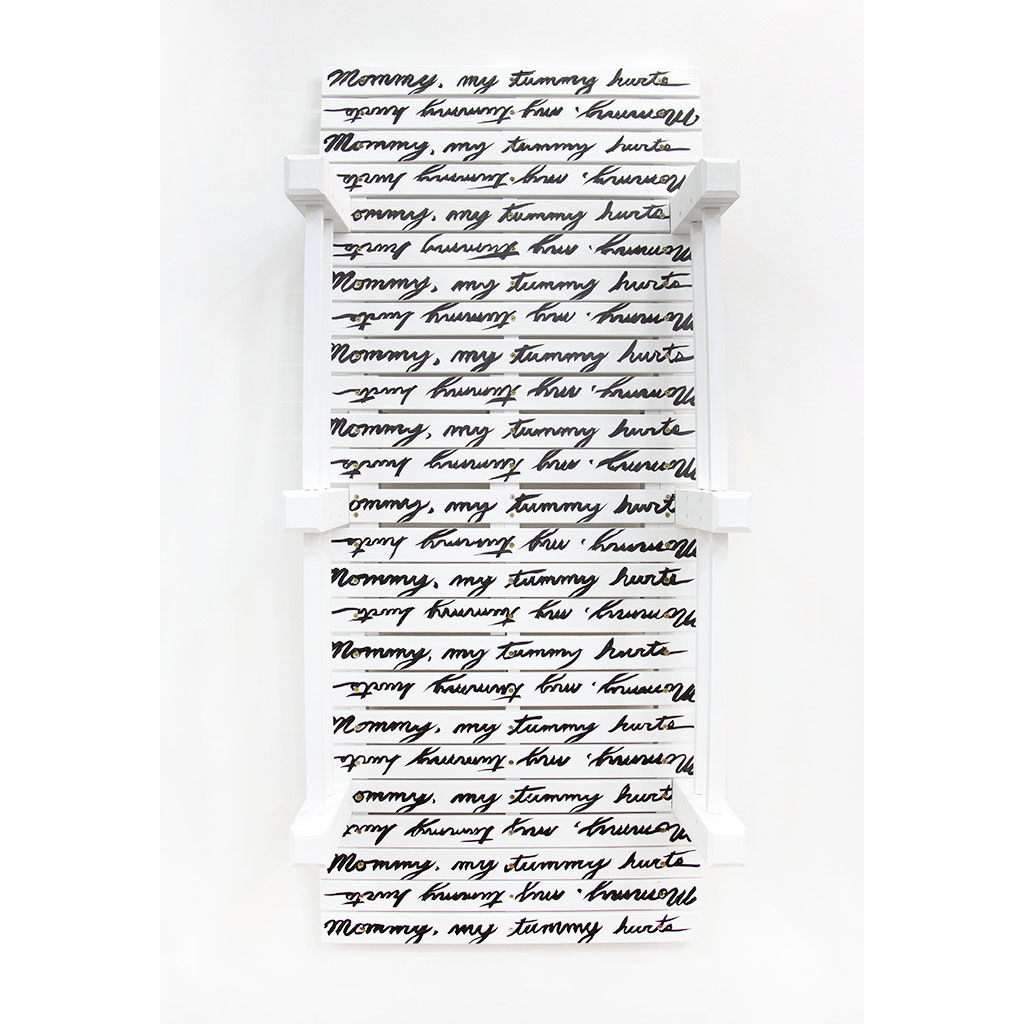 Mommy, my tummy hurts
Mommy, my tummy hurts
Mommy, my tummy hurts
Mommy, my tummy hurts
ommy, my tummy hurts
Mommy, my tummy hurts
Mommy, my tummy hurts
Mommy, my tummy hurts
Mommy, my tummy hurts
Mommy, my tummy hurts
Mommy, my tummy hurts
Mommy, my tummy hurts
ommy, my tummy hurt
Mommy, my tummy hurts
Mommy, my tummy hurts
Mommy, my tummy hurts
Mommy, my tummy hurts
Mommy, my tummy hurts
Mommy, my tummy hurts
Mommy, my tummy hurts
ommy, my tummy hurt
Mommy, my tummy hurt
Mommy, my tummy hurts
Mommy, my tummy hurts
Mommy, my tummy hurts